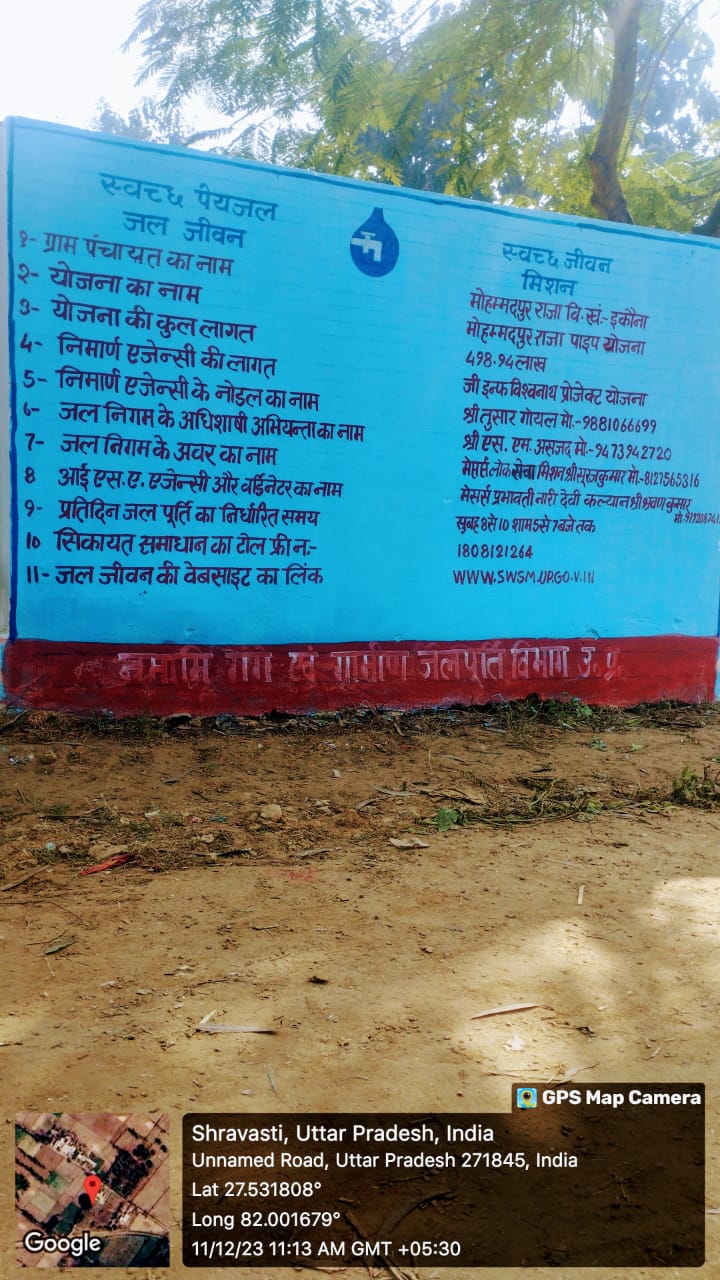 स्वच्छ पेयजल
जल जीवन
स्वच्छ जीवन
मिशन
१- ग्राम पंचायत का नाम
मोहम्मदपुर राजा वि.खं.- इकौना
२- योजना का नाम
मोहम्मदपुर राजा पाइप योजना
३- योजना की कुल लागत
498.94 लाख
4- निमार्ण एजेन्सी की लागत
जी इन्फ विश्वनाथ प्रोजेक्ट योजना
5- निमार्ण एजेन्सी के नोडल का नाम
श्री तुसार गोयल मो.-9881066699
6- जल निगम के अधिशाषी अभियन्ता का नाम
श्री एस. एम. असजद मो.-9473942720
7- जल निगम के अवर का नाम
लोक सेवा मिशन श्री सूरज कुमार मो.-8127565816
8 आई एस.ए. एजेन्सी और वर्डिनेटर का नाम
मेसर्स प्रभावती नारी देवी कल्यान श्री श्रवण कुमार
मो.
9- प्रतिदिन जल पूर्ति का निर्धारित समय
सुबह 8 से 10 शाम 5 से 7 बजे तक
10 सिकायत समाधान का टोल फ्री न:-
1808121264
11- जल जीवन की वेबसाइट का लिंक
WWW.SWSM.UP.GO.V.IN
नमामि गंगे एवं ग्रामीण जलपूर्ति विभाग उ. प्र.
GPS Map Camera
Shravasti, Uttar Pradesh, India
Unnamed Road, Uttar Pradesh 271845, India
Lat 27.531808°
Long 82.001679°
11/12/23 11:13 AM GMT +05:30
Google